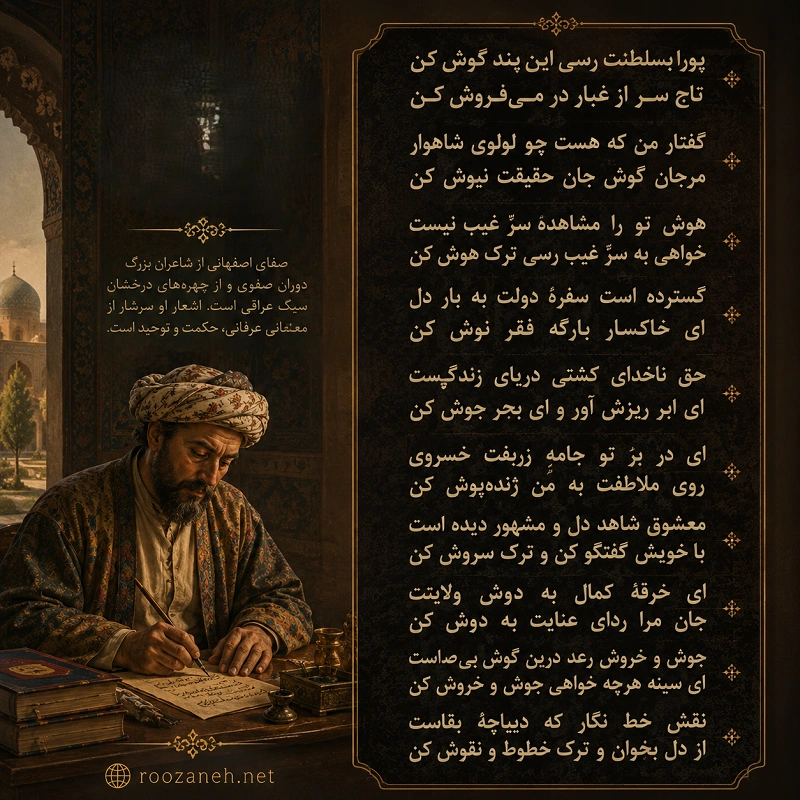 پورا بسلطنت رسی این پند گوش کن
تاج سر از غبار در می‌فروش کن
گفتار من که هست چو لولوی شاهوار
مرجان گوش جان حقیقت نیوش کن
هوش تو را مشاهدهٔ سرِّ غیب نیست
خواهی به سرِّ غیب رسی ترک هوش کن
گسترده است سفرهٔ دولت به بار دل
ای خاکسار بارگه فقر نوش کن
حق ناخدای کشتی دریای زندگیست
ای ابر ریزش آور و ای بجر جوش کن
ای در برُ تو جامهٍ زربفت خسروی
روی ملاطفت به مُن ژنده‌پوش کن
معشوق شاهد دل و مشهور دیده است
با خویش گفتگو کن و ترک سروش کن
ای خرقهٔ کمال به دوش ولایتت
جان مرا ردای عنایت به دوش کن
جوش و خروش رعد درین گوش بی‌صداست
ای سینه هرچه خواهی جوش و خروش کن
نقش خط نگار که دیباچهٔ بقاست
از دل بخوان و ترک خطوط و نقوش کن
صفای اصفهانی از شاعران بزرگ
دوران صفوی و از چهره‌های درخشان
سبک عراقی است. اشعار او سرشار از
عرفانی، حکمت و توحید است.
roozaneh.net